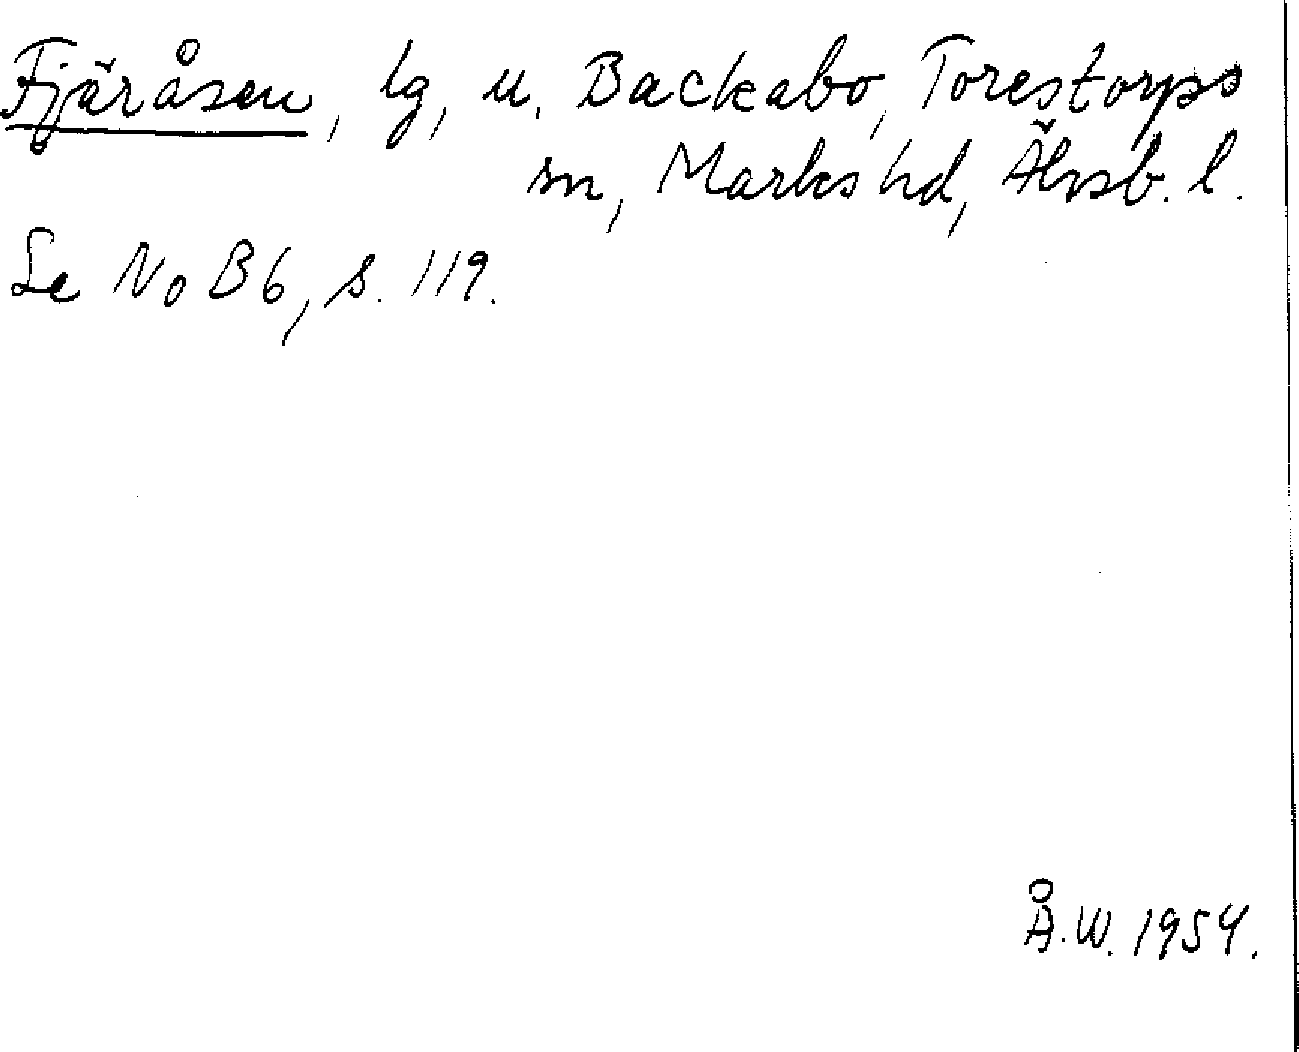 Fjäråsen, lg, u. Backabo, Torestorps
sn, Marks hd, Älvsb. l.
Se NoB 6, s. 119.
Å.W. 1954.